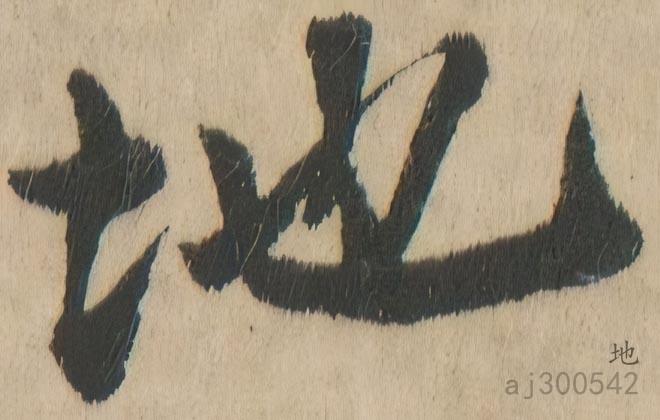 地
地
aj300542